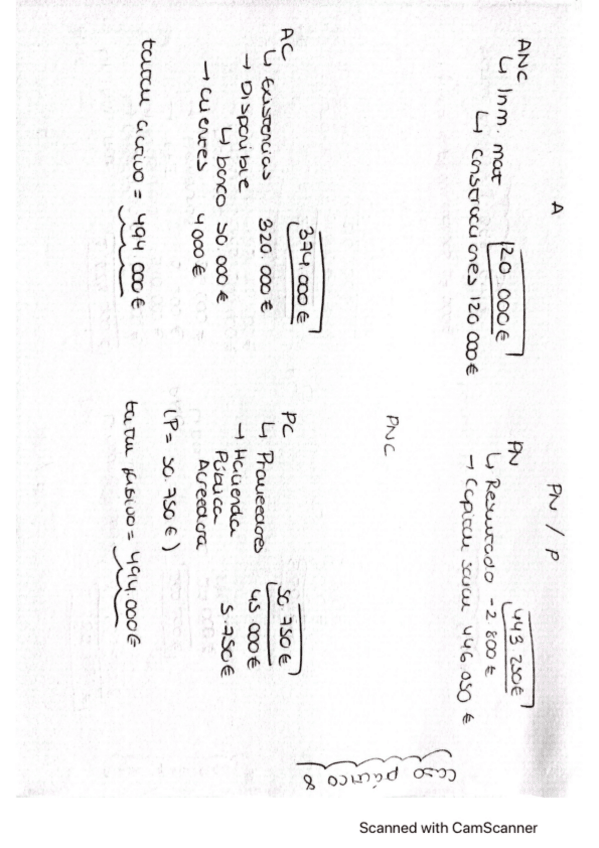 caso páctico 8
A
ANC 120.000€
↳ Inm. mat
↳ Construcciones 120 000€
AC 374.000€
↳ Existencias 320.000€
→ Disponible
↳ banco 50.000€
→ clientes 4000€
total activo = 494.000€
PN / P
PN 443 250€
↳ Resultado -2.800€
→ Capital social 446.050 €
PNC
PC 50.750€
↳ Proveedores 45.000€
→ Hacienda
Pública
Acreedora 5.750€
(P = 50.750€)
total pasivo = 494.000€
Scanned with CamScanner